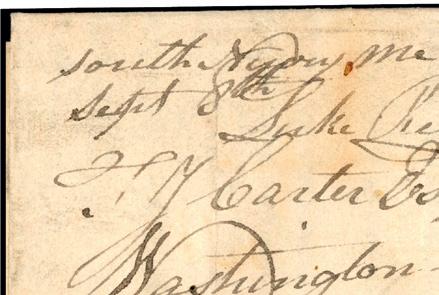 south me
Sept 8th
Luke
Carter Es
Washington